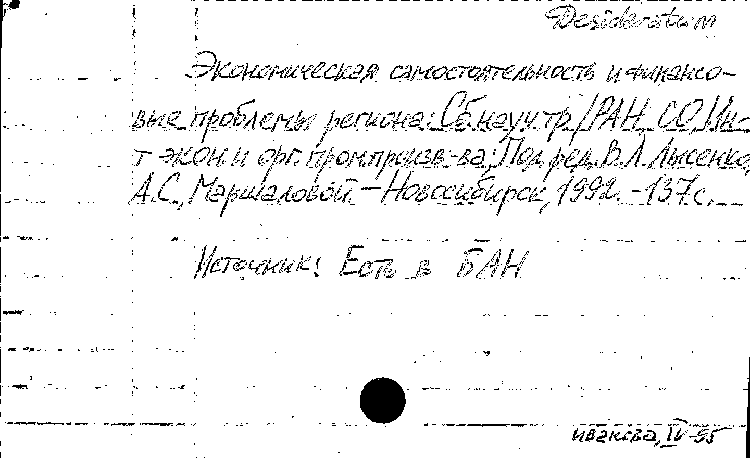 Desideratum
Экономическая самостоятельность и финансо-
вые проблемы региона: Сб. науч. тр. / РАН. СО. Ин-
т экон. и орг. пром. произв-ва; Под ред. В.Л. Лысенко,
А.С. Маршаловой. - Новосибирск, 1992. - 137 с.
Источник: Есть в БАН
IV-95